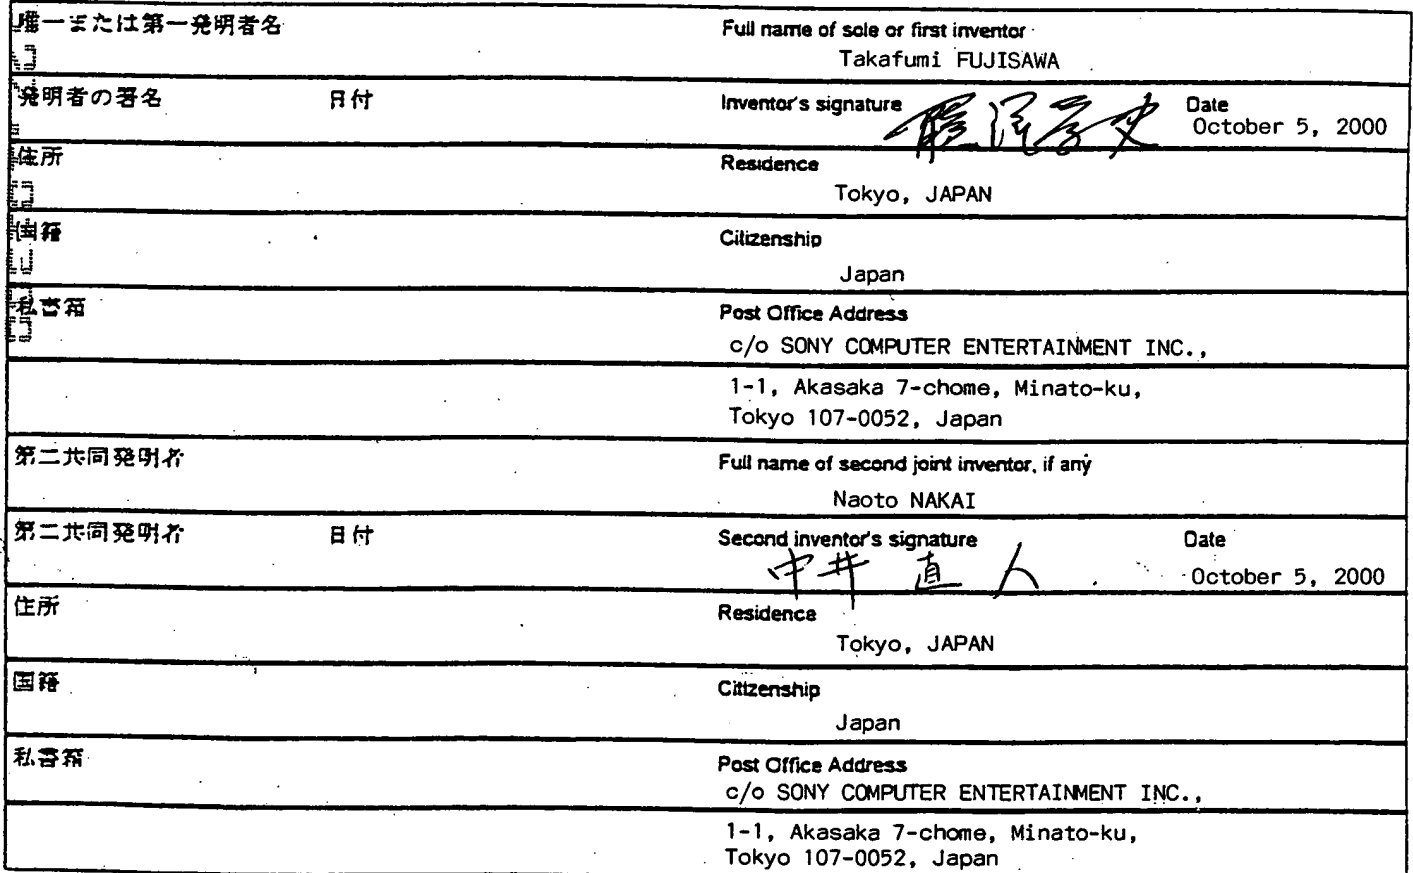 唯一または第一発明者名
Full name of sole or first inventor
Takafumi FUJISAWA
発明者の署名 日付
Inventor's signature 藤澤孝史 Date
October 5, 2000
住所
Residence
Tokyo, JAPAN
国籍
Citizenship
Japan
私書箱
Post Office Address
c/o SONY COMPUTER ENTERTAINMENT INC.,
1-1, Akasaka 7-chome, Minato-ku,
Tokyo 107-0052, Japan
第二共同発明者
Full name of second joint inventor, if any
Naoto NAKAI
第二共同発明者 日付
Second inventor's signature Date
中井 直人 October 5, 2000
住所
Residence
Tokyo, JAPAN
国籍
Citizenship
Japan
私書箱
Post Office Address
c/o SONY COMPUTER ENTERTAINMENT INC.,
1-1, Akasaka 7-chome, Minato-ku,
Tokyo 107-0052, Japan